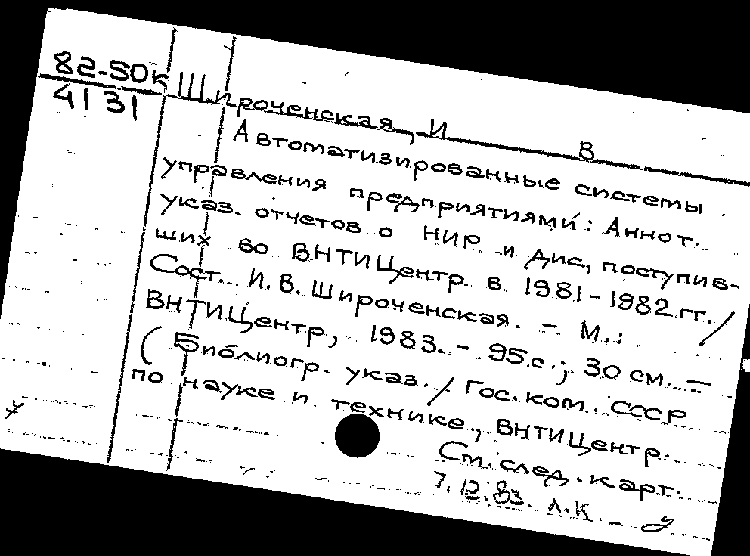 82-50к
4131
Широченская, И В
Автоматизированные системы
управления предприятиями: Аннот.
указ. отчетов о НИР и дис., поступив-
ших во ВНТИЦентр в 1981-1982 гг./
Сост. И.В. Широченская. - М.:
ВНТИЦентр, 1983. - 95 с.; 30 см. -
(Библиогр. указ. / Гос. ком. СССР
по науке и технике, ВНТИЦентр.
См. след. карт.
7.12.83. Л.К. - у